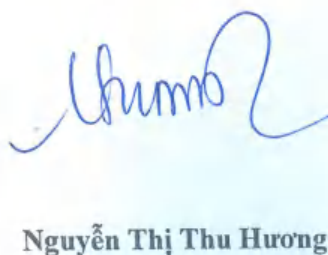 Nguyễn Thị Thu Hương